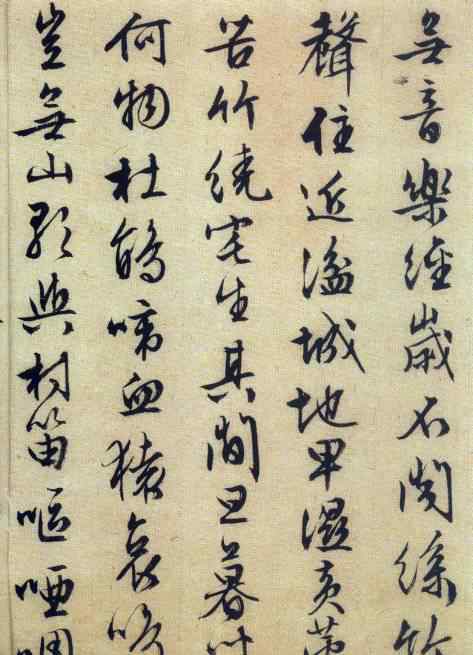 無音樂經歲不聞絲竹
聲住近湓城地卑濕黃
苦竹繞宅生其間旦暮
何物杜鵑啼血猿哀鳴
豈無山歌與村笛嘔啞